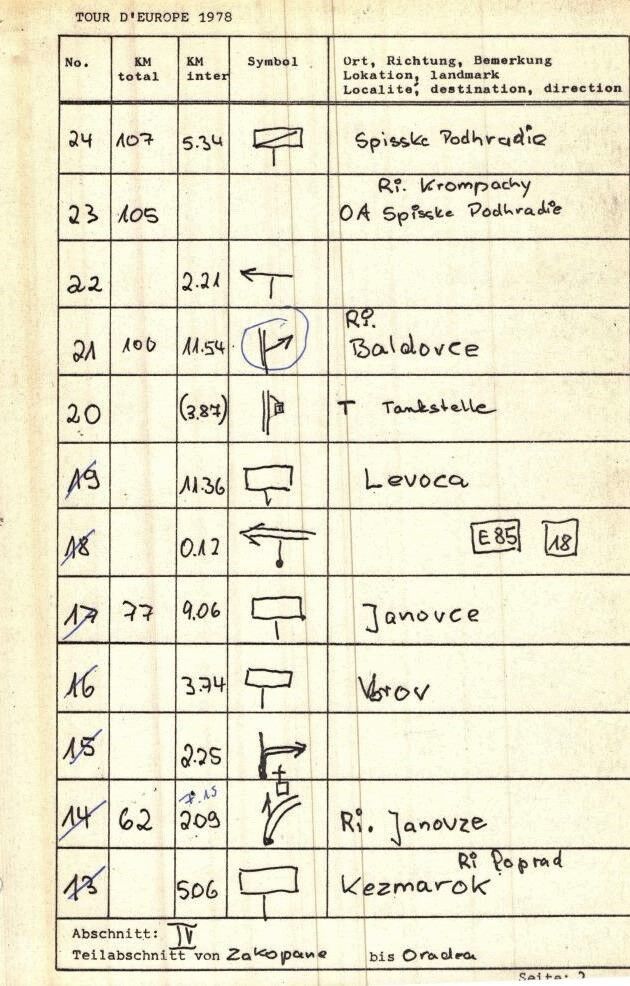 TOUR D'EUROPE 1978
No. KM total KM inter Symbol Ort, Richtung, Bemerkung
Lokation, landmark
Localité, destination, direction
24 107 5.34 Spisske Podhradie
Ri. Krompachy
23 105 OA Spisske Podhradie
22 2.21
Ri.
21 100 11.54 Baldovce
20 (3.87) T Tankstelle
19 11.36 Levoca
18 0.12 E85 18
17 77 9.06 Janovce
16 3.74 Vbrov
15 2.25
7.15
14 62 209 Ri. Janovze
Ri Poprad
13 506 Kezmarok
Abschnitt: IV
Teilabschnitt von Zakopane bis Oradea
Seite: 2